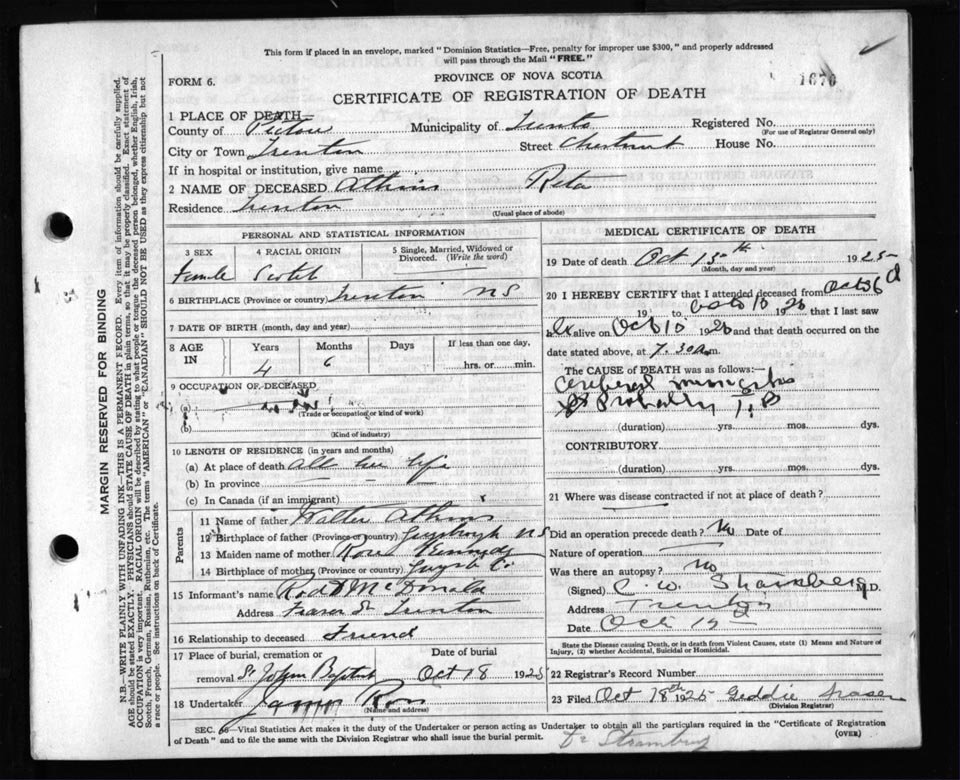 This form if placed in an envelope, marked "Dominion Statistics—Free, penalty for improper use $300," and properly addressed
will pass through the Mail "FREE."
FORM 6.
PROVINCE OF NOVA SCOTIA
1676
CERTIFICATE OF REGISTRATION OF DEATH
1 PLACE OF DEATH
County of Pictou Municipality of Registered No.
(For use of Registrar General only)
City or Town Trenton Street Chestnut House No.
If in hospital or institution, give name
2 NAME OF DECEASED Atkins Reta
Residence Trenton
(Usual place of abode)
PERSONAL AND STATISTICAL INFORMATION
3 SEX 4 RACIAL ORIGIN 5 Single, Married, Widowed or Divorced. (Write the word)
Female Scotch
6 BIRTHPLACE (Province or country) Trenton NS
7 DATE OF BIRTH (month, day and year)
8 AGE IN Years Months Days If less than one day,
4 6 hrs. or min.
9 OCCUPATION OF DECEASED
(a)
(Trade or occupation or kind of work)
(b)
(Kind of industry)
10 LENGTH OF RESIDENCE (in years and months)
(a) At place of death all her life
(b) In province
(c) In Canada (if an immigrant)
Parents
11 Name of father Walter Atkins
12 Birthplace of father (Province or country) NS
13 Maiden name of mother Rose Kennedy
14 Birthplace of mother (Province or country) Guysb Co
15 Informant's name Rod McDonald
Address Fraser St Trenton
16 Relationship to deceased Friend
17 Place of burial, cremation or Date of burial
removal St John Baptist Oct 18 1925
18 Undertaker James Ross
(Name and address)
MEDICAL CERTIFICATE OF DEATH
19 Date of death Oct 15th 1925
(Month, day and year)
20 I HEREBY CERTIFY that I attended deceased from
19 to 19 that I last saw
alive on Oct 10 19 and that death occurred on
date stated above, at 7.30 a.m.
The CAUSE of DEATH was as follows:—
Cerebral meningitis
Probably T.B
(duration) yrs. mos. dys.
CONTRIBUTORY
(duration) yrs. mos. dys.
21 Where was disease contracted if not at place of death?
Did an operation precede death? No Date of
Nature of operation
Was there an autopsy? No
(Signed) C. W. M.D.
Address Trenton
Date Oct
State the Disease Causing Death, or in death from Violent Causes, state (1) Means and Nature of
Injury, (2) whether Accidental, Suicidal or Homicidal.
22 Registrar's Record Number
23 Filed Oct 18th 1925 Geddie Fraser
(Division Registrar)
SEC. 6—Vital Statistics Act makes it the duty of the Undertaker or person acting as Undertaker to obtain all the particulars required in the "Certificate of Registration
of Death" and to file the same with the Division Registrar who shall issue the burial permit.
(OVER)
MARGIN RESERVED FOR BINDING
N.B.—WRITE PLAINLY WITH UNFADING INK—THIS IS A PERMANENT RECORD. Every item of information should be carefully supplied.
AGE should be stated EXACTLY. PHYSICIANS should STATE CAUSE OF DEATH in plain terms, so that it may be properly classified. Exact statement of
OCCUPATION is very important. RACIAL ORIGIN will be described by stating to what people or tongue the deceased person belonged, whether English, Irish,
Scotch, French, German, Russian, Ruthenian, etc. The terms "AMERICAN" or "CANADIAN" SHOULD NOT BE USED as they express citizenship but not
a race or people. See instructions on back of Certificate.